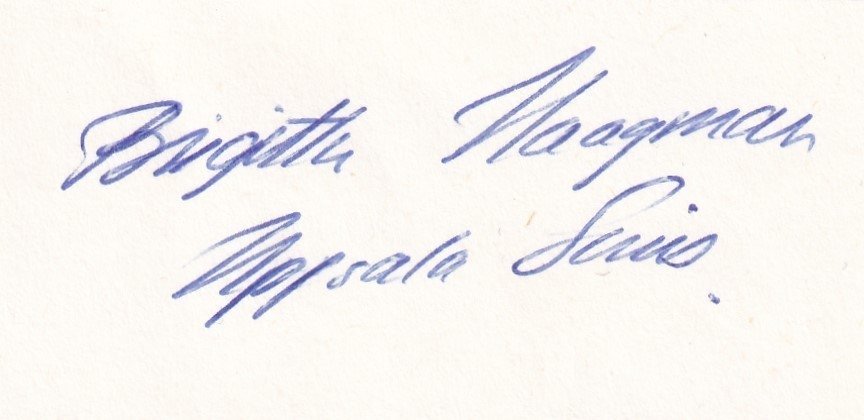 Brigitta Haagman
Uppsala Simis.